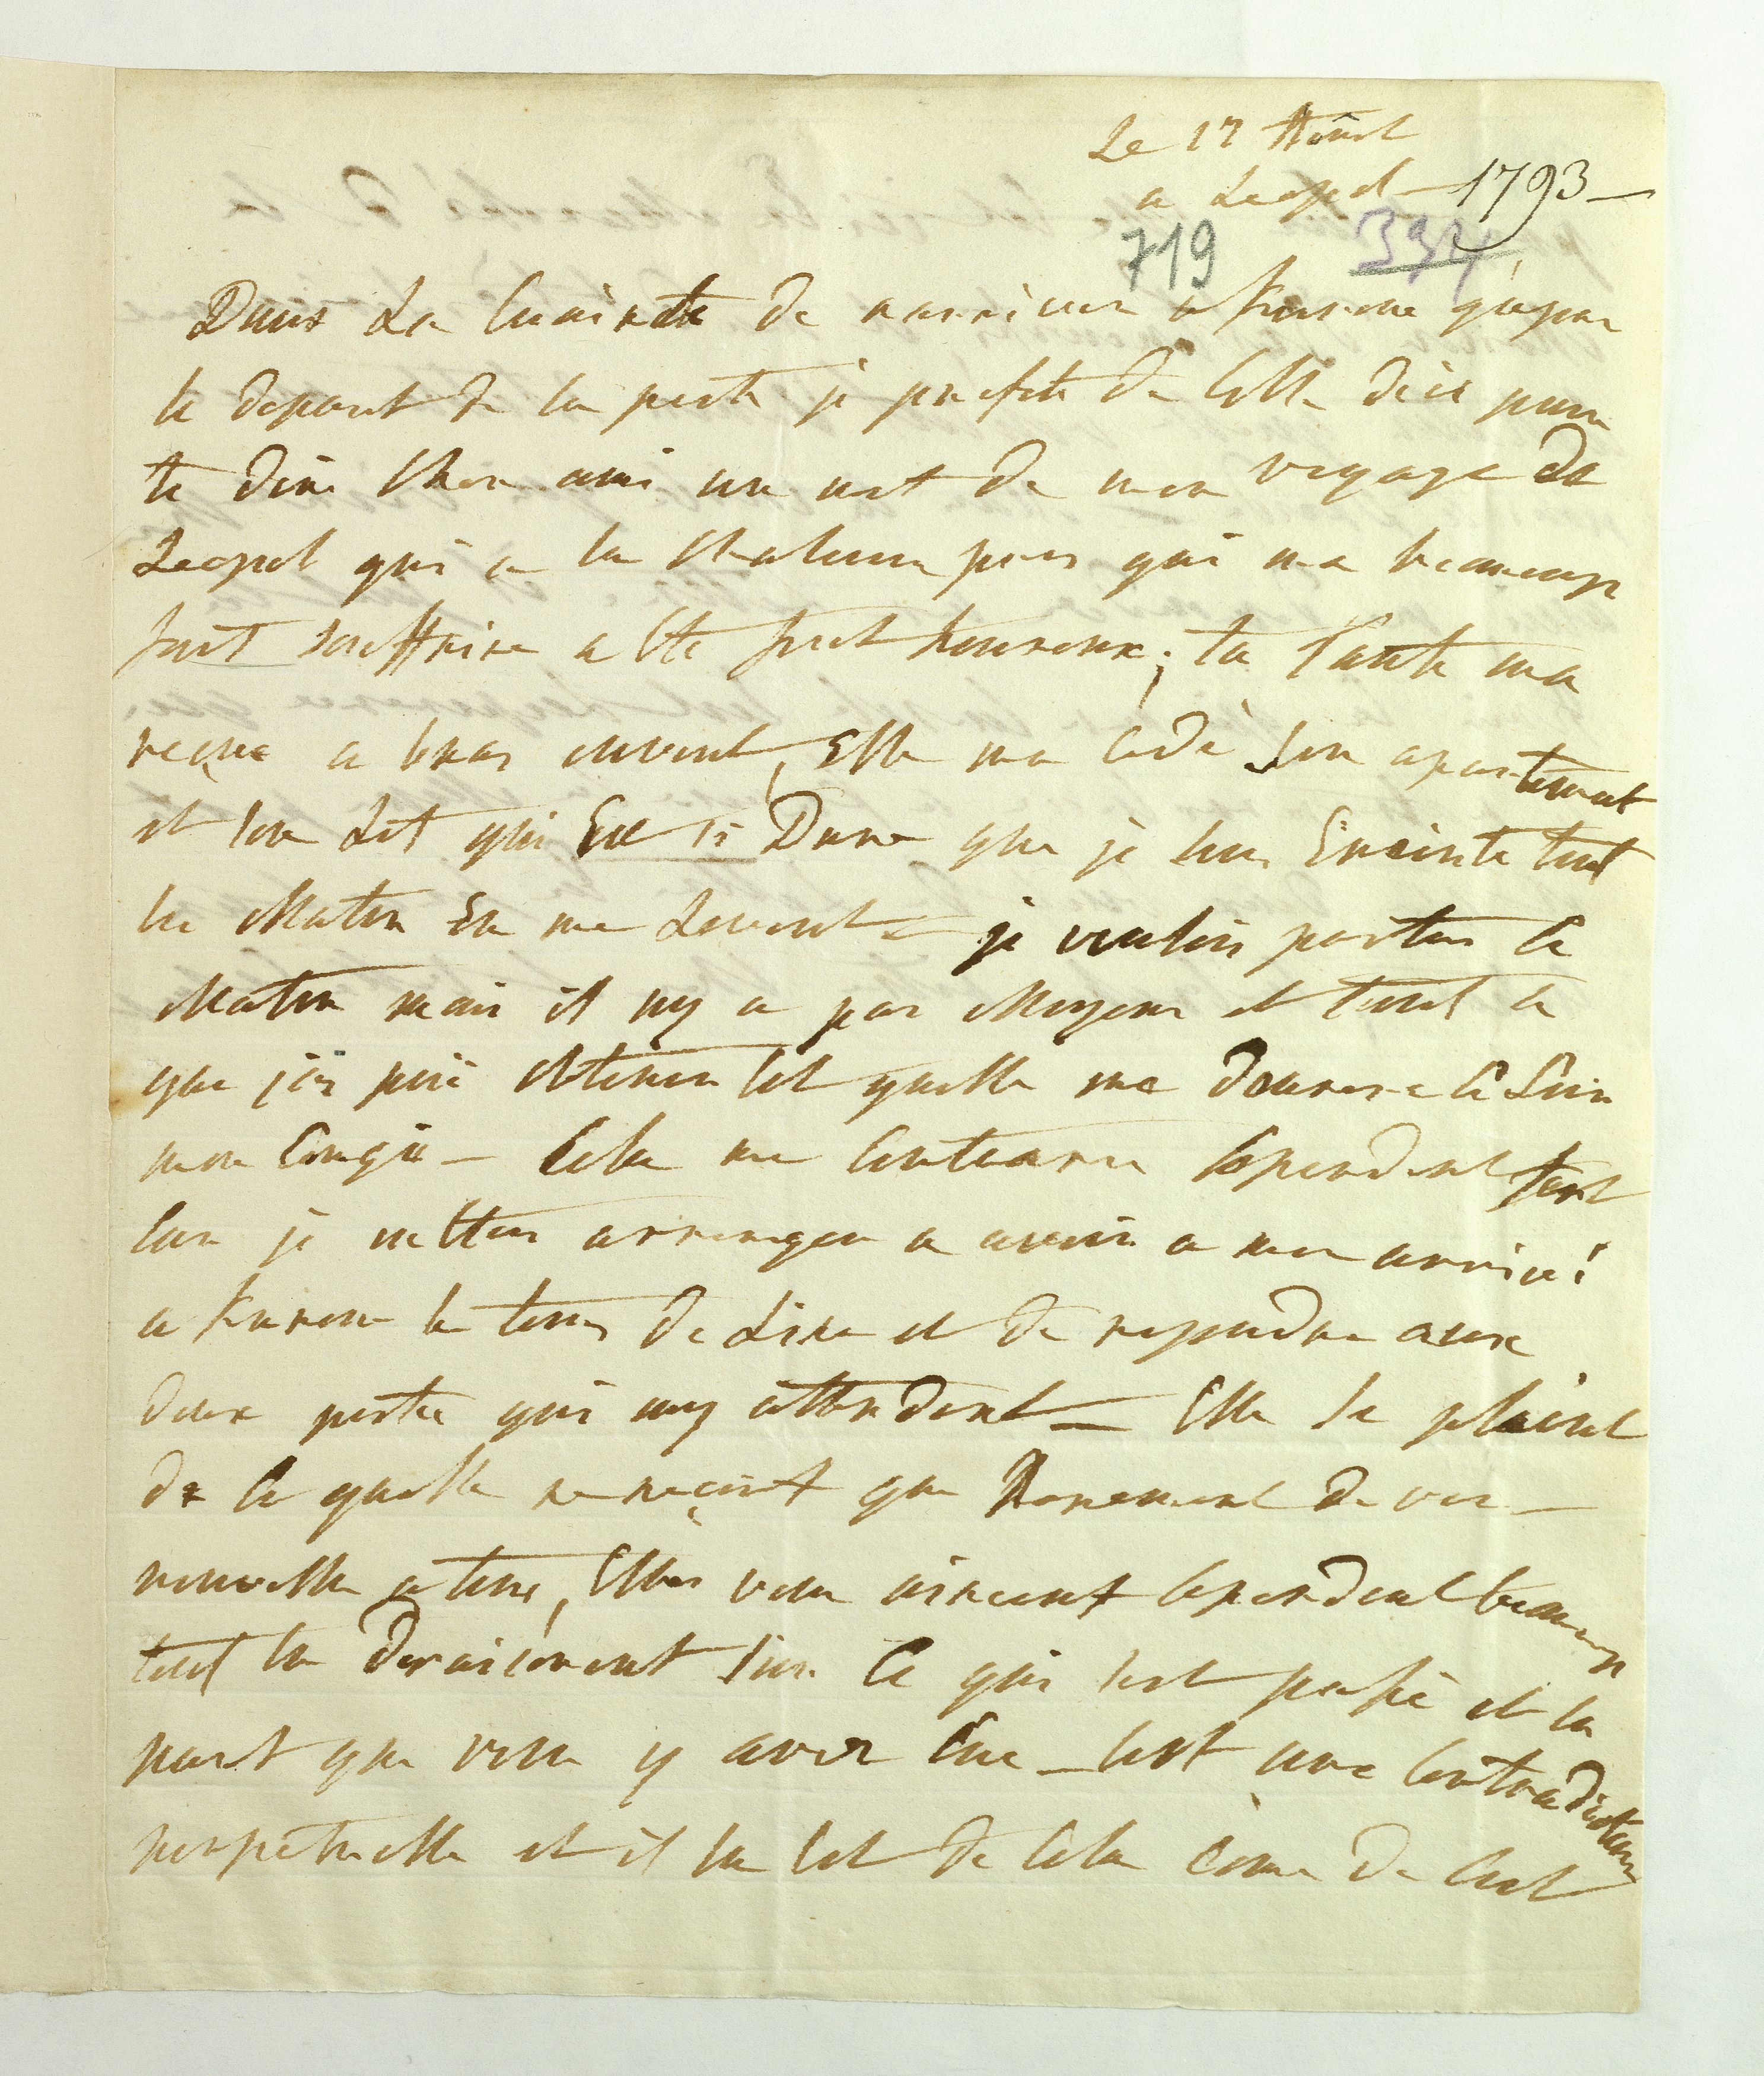 Le 17 Août
a Leopol - 1793 -
719 394
Dans La Crainte de narriver a Kurone quapres
le depart de la poste je profite de Celle dici pour
te dire Cher ami un mot de mon voyage de
Leopol qui a la Chaleur pres qui ma beaucoup
fait souffrire a Ete fort heureux; ta Tante ma
reçue a bras ouvert, Elle ma Cedé Son apartement
et son Lit qui Est si Dure que je suis Ereinte tout
les Matin En me Levent - je voulois partire Ce
Matin mais il ny a pas Moyens et tout Ce
que jai pue obtenir Cest quelle me donnera Ce Soir
mon Congé - Cela me Contrarie Cependent fort
Car je mettois arrengee a avoir a mon arrivé
a Kurone le tems de Lire et de repondre aux
deux poste qui my attendent - Elle se plaint
de Ce quelle ne reçoit que Rarement de vos -
nouvelle a tous, Elles vous aiment Cependent beaucoup
tout en deraisonent sur Ce qui sest passé et la
part que vous y avez Eue - Cest une Contradiction
perpetuelle et il en Est de Cela Come de Cest